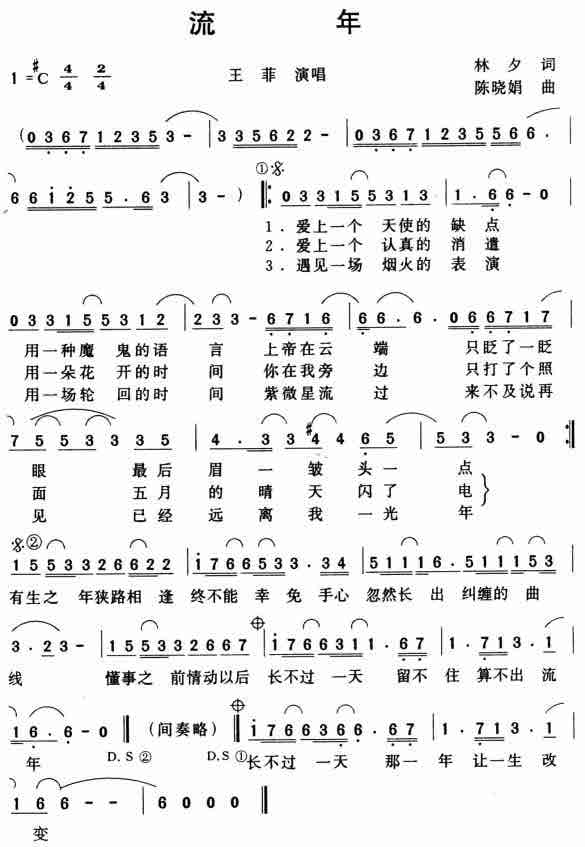 流 年
1=#C 4/4 2/4 王菲 演唱 林夕 词
陈晓娟 曲
(0 3 6 7 1 2 3 5 3 - | 3 3 5 6 2 2 - | 0 3 6 7 1 2 3 5 5 6 6 . |
6 6 1 2 5 5 . 6 3 | 3 - ) ①𝄋 ‖: 0 3 3 1 5 5 3 1 3 | 1 . 6 6 - 0
1. 爱上一个 天使的 缺 点
2. 爱上一个 认真的 消 遣
3. 遇见一场 烟火的 表 演
0 3 3 1 5 5 3 1 2 | 2 3 3 - 6 7 1 6 | 6 6 . 6 . 0 6 6 7 1 7 |
用一种魔 鬼的语 言 上帝在云 端 只眨了一眨
用一朵花 开的时 间 你在我旁 边 只打了个照
用一场轮 回的时 间 紫微星流 过 来不及说再
7 5 5 3 3 3 5 | 4 . 3 3 #4 4 6 5 | 5 3 3 - 0 :‖
眼 最后 眉 一 皱 头 一 点
面 五月 的 晴 天 闪 了 电
见 已经 远 离 我 一 光 年
𝄋②
1 5 5 3 3 2 6 6 2 2 | 1 7 6 6 5 3 3 . 3 4 | 5 1 1 1 6 . 5 1 1 1 5 3
有生之 年狭路相 逢 终不能 幸 免 手心 忽然长 出 纠缠的 曲
3 . 2 3 - | 1 5 5 3 3 2 2 6 6 7 | 1 7 6 6 3 1 1 . 6 7 | 1 . 7 1 3 . 1
线 懂事之 前情动以后 长不过 一天 留不 住 算不出 流
1 6 . 6 - 0 ‖ (间奏略) ‖ 1 7 6 6 3 6 6 . 6 7 | 1 . 7 1 3 . 1
年 D.S ② D.S ① 长不过 一天 那一 年 让一生 改
1 6 6 - - | 6 0 0 0 ‖
变